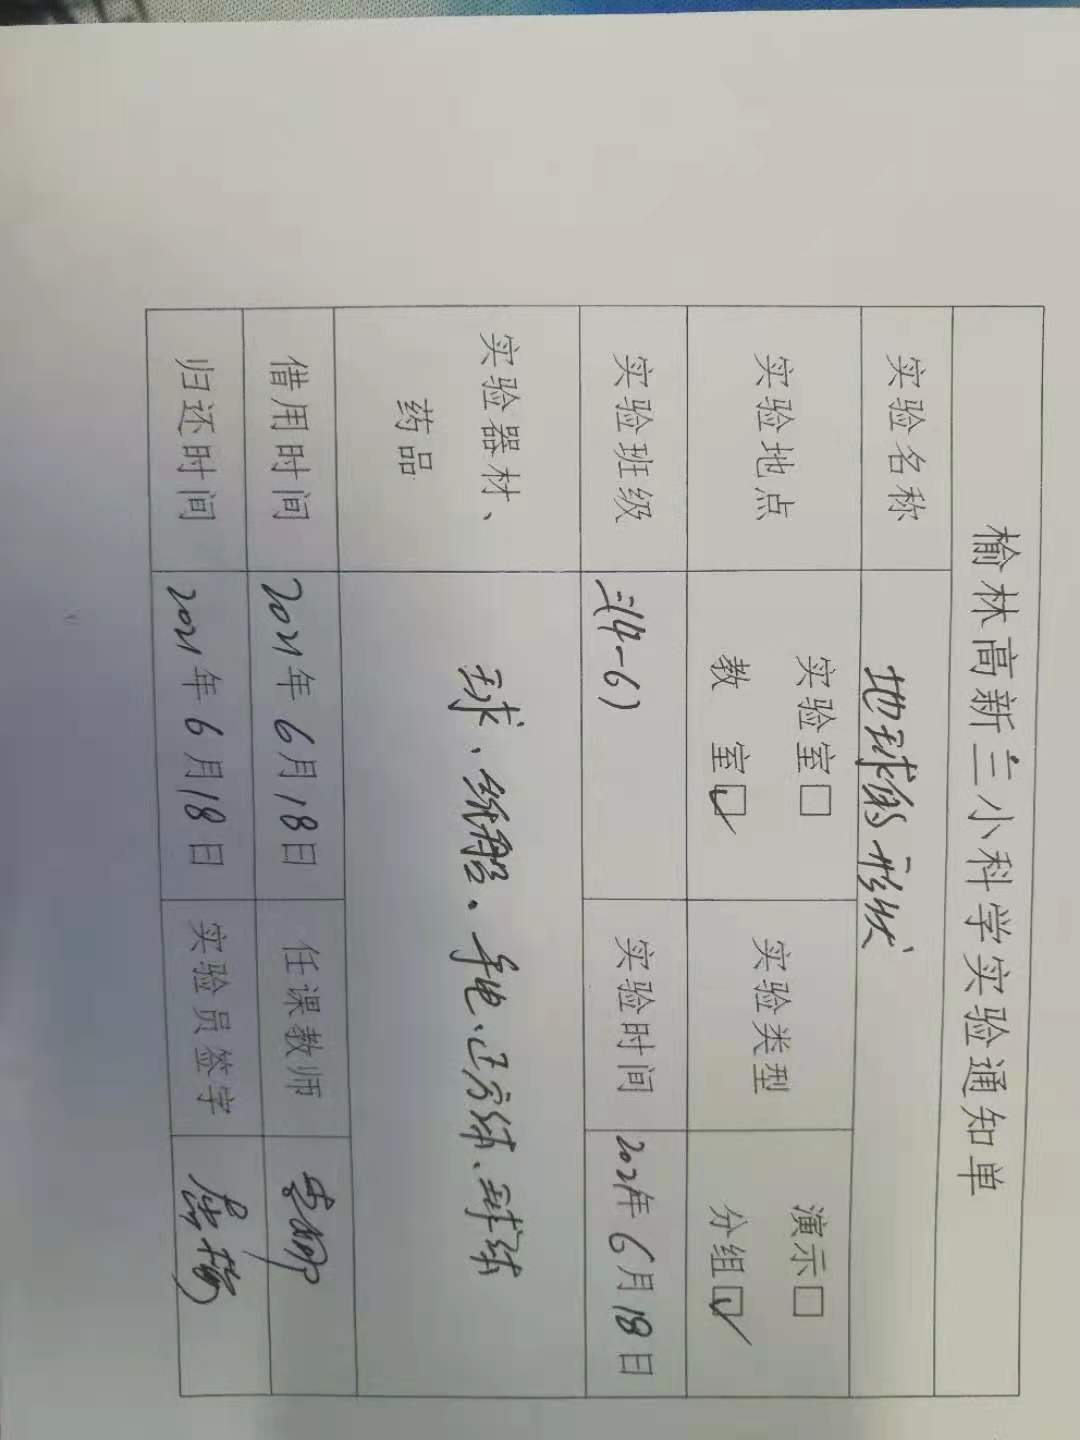 榆林高新三小科学实验通知单
实验名称 地球的形状
实验地点 实验室□ 教 室☑ 实验类型 演示□ 分组☑
实验班级 三(4-6) 实验时间 2021年6月18日
实验器材、药品 球、纸船。手电、正方体、球体
借用时间 2021年6月18日 任课教师
归还时间 2021年6月18日 实验员签字